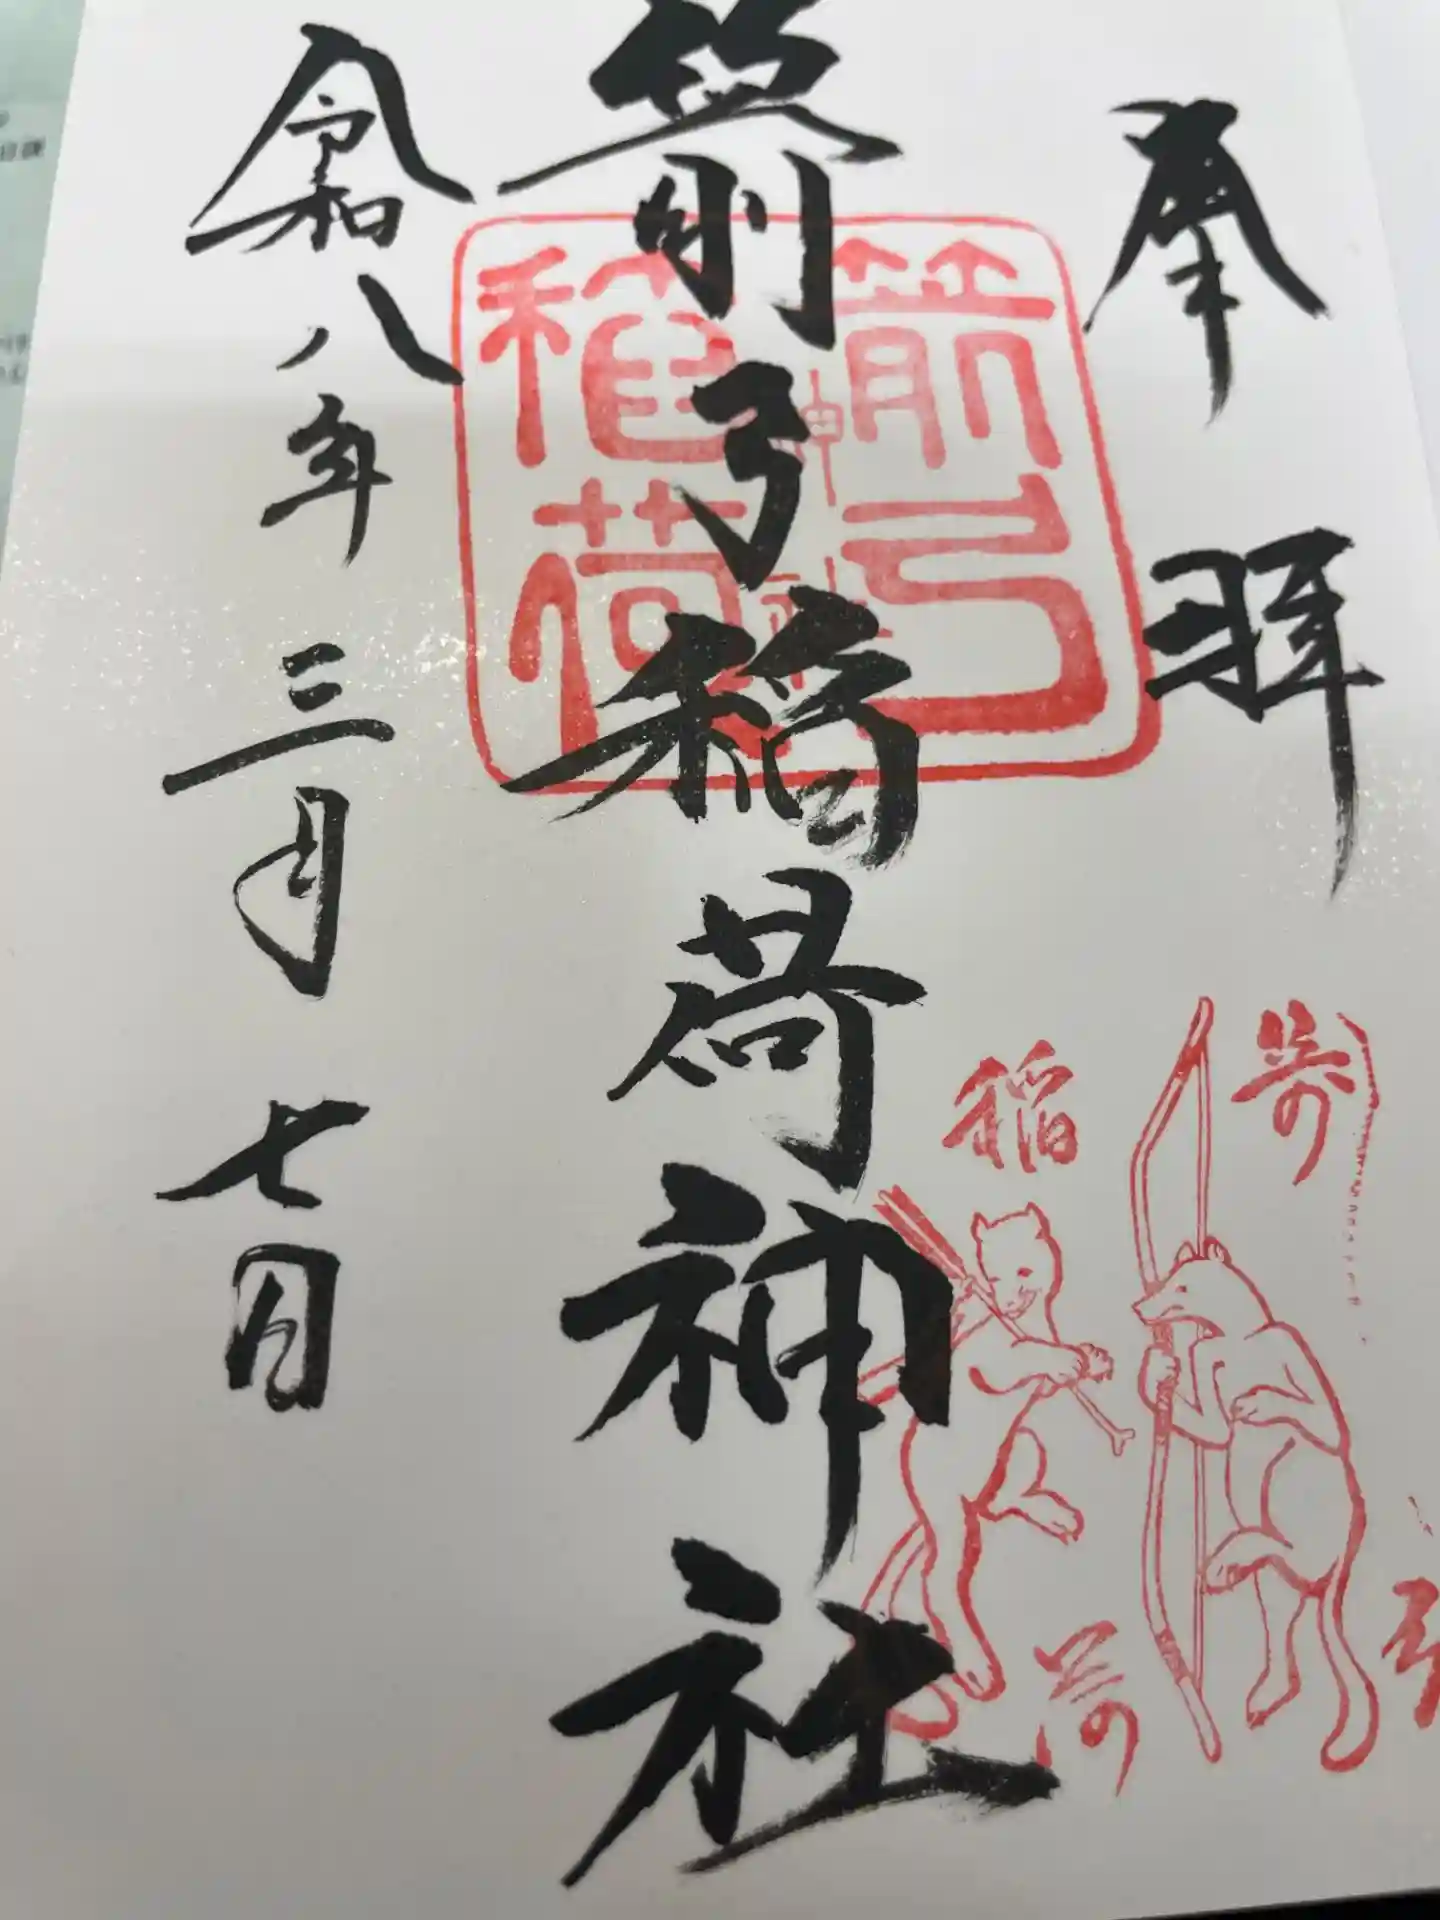 奉拝
箭弓稲荷神社
令和八年三月七日
箭弓
稲荷
神社
箭
弓
稲
荷